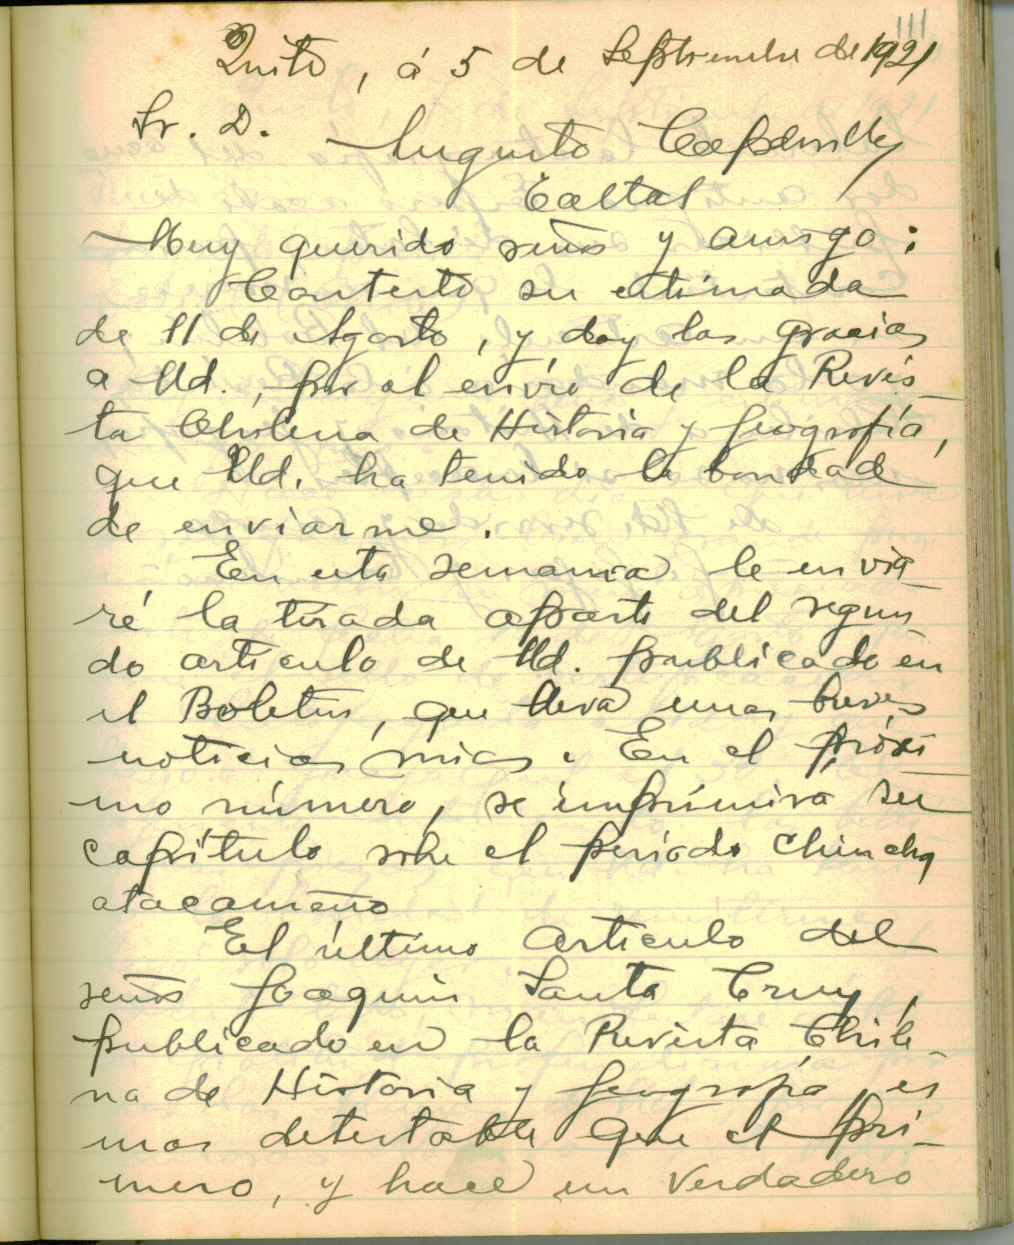 111
Quito, á 5 de Septiembre de 1921
Sr. D.
Augusto Capdeville
Taltal
Muy querido señor y amigo:
Contesto su estimada
de 11 de Agosto, y doy las gracias
a Ud., por el envio de la Revis-
ta Chilena de Historia y Geografía,
que Ud. ha tenido la bondad
de enviarme.
En esta semana le envia-
ré la tirada aparte del segun
do articulo de Ud. publicado en
el Boletin, que lleva unas breves
noticias mias. En el próxi-
mo número, se imprimirá su
capítulo sobre el período chincha
atacameño
El último articulo del
señor Joaquin Santa Cruz,
publicado en la Revista Chile-
na de Historia y Geografía, es
mas detestable que el pri-
mero, y hace un verdadero